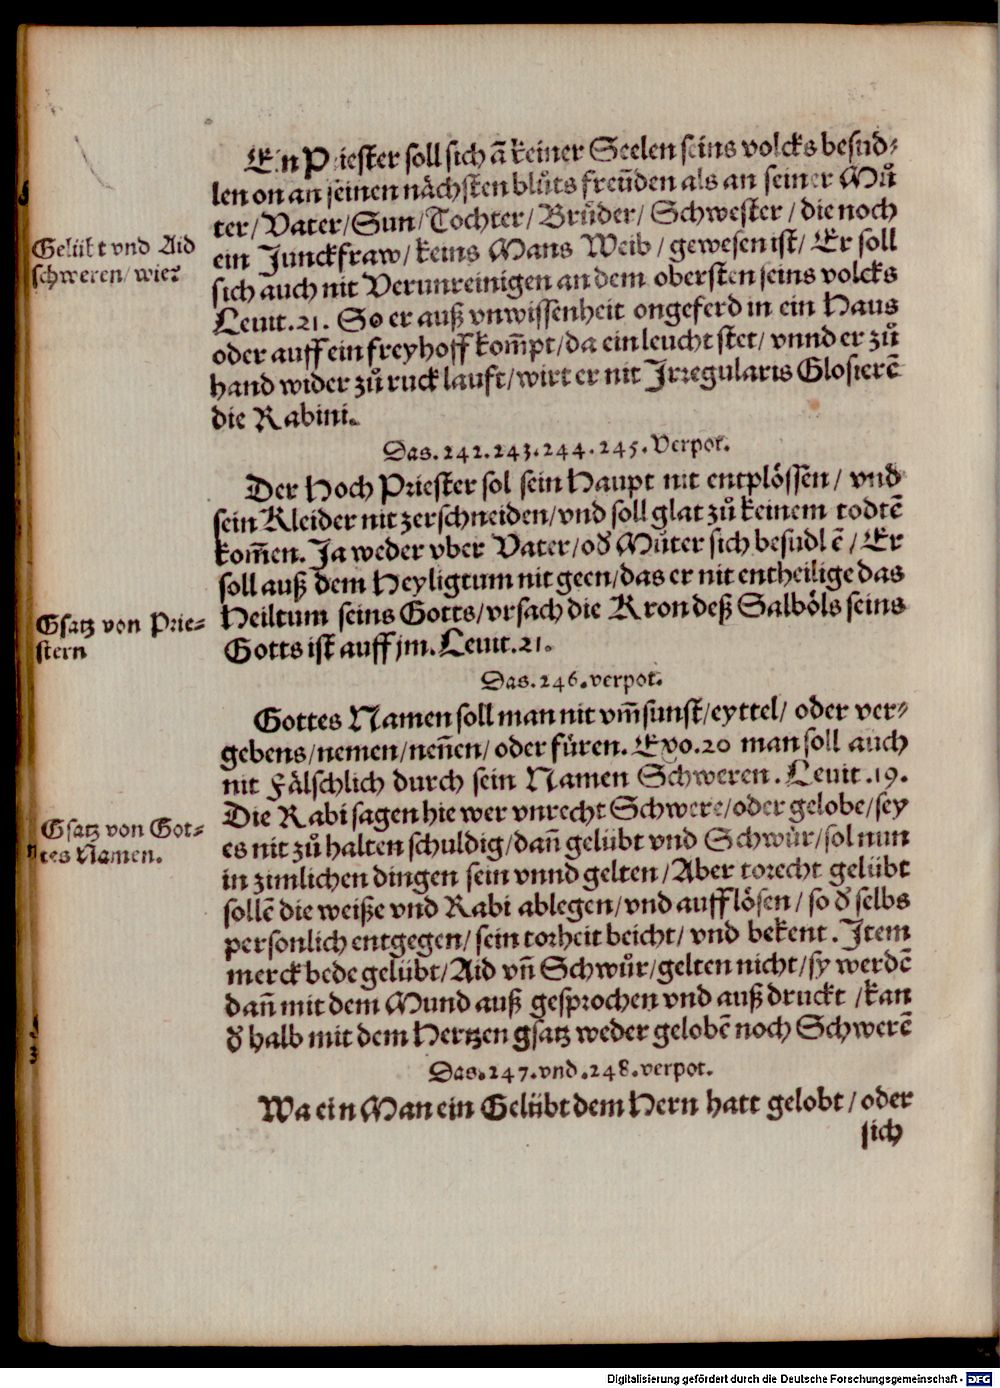 Ein Priester soll sich ā keiner Seelen seins volcks besud⸗
len on an seinen nächsten blůts freūden als an seiner Mů
ter/ Vater/ Sun/ Tochter/ Brůder/ Schwester/ die noch
ein Junckfraw/ keins Mans Weib/ gewesen ist/ Er soll
sich auch nit Verunreinigen an dem obersten seins volcks
Leuit.21. So er auß vnwissenheit ongeferd in ein Haus
oder auff ein freyhoff kom̄pt/ da ein leucht stet/ vnnd er zů
hand wider zů ruck lauft/ wirt er nit Irregularis Glosierē
die Rabini.
Gelübt vnd Aid
schweren/ wie?
Das.242.243.244.245.Verpot.
Der Hoch Priester sol sein Haupt nit entplössen/ vnd
sein Kleider nit zerschneiden/ vnd soll glat zů keinem todtē
kom̄en. Ja weder vber Vater/ oď Můter sich besudlē/ Er
soll auß dem Heyligtum nit geen/ das er nit entheilige das
Heiltum seins Gotts/ vrsach die Kron deß Salböls seins
Gotts ist auff jm. Leuit.21.
Gsatz von Prie⸗
stern
Das.246.verpot.
Gottes Namen soll man nit vm̄sunst/ eyttel/ oder ver⸗
gebens/ nemen/ nen̄en/ oder füren. Exo.20 man soll auch
nit Fälschlich durch sein Namen Schweren. Leuit.19.
Die Rabi sagen hie wer vnrecht Schwere/ oder gelobe/ sey
es nit zů halten schuldig/ dan̄ gelübt vnd Schwůr/ sol nun
in zimlichen dingen sein vnnd gelten/ Aber torecht gelübt
sollē die weiße vnd Rabi ablegen/ vnd aufflösen/ so ď selbs
personlich entgegen/ sein torheit beicht/ vnd bekent. Item
merck bede gelübt/ Aid vn̄ Schwůr/ gelten nicht/ sy werdē
dan̄ mit dem Mund auß gesprochen vnd auß druckt/ kan
ď halb mit dem Hertzen gsatz weder gelobē noch Schwerē
Gsatz von Got⸗
tes Namen.
Das.247.vnd.248.verpot.
Wa ein Man ein Gelübt dem Hern hatt gelobt/ oder
sich
Digitalisierung gefördert durch die Deutsche Forschungsgemeinschaft - DFG